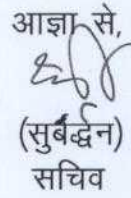 आज्ञा से,
(सुबर्द्धन)
सचिव